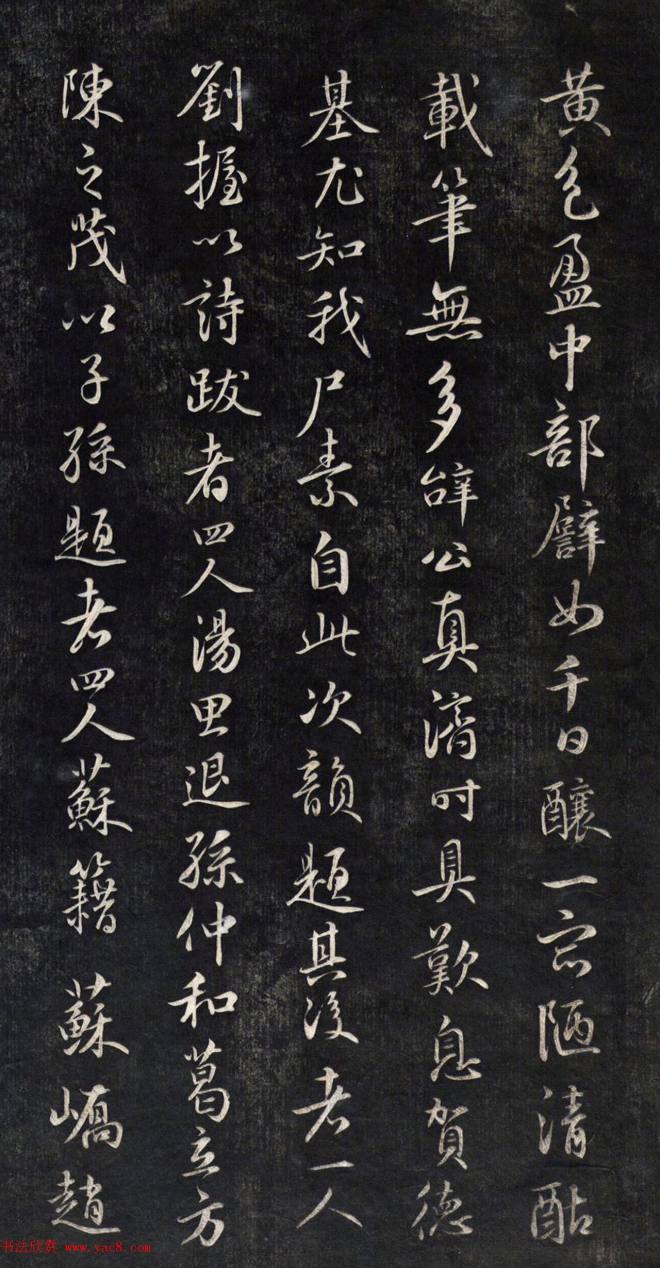 黄色盈中部譬如千日釀一宗陋清酤
載筆無多辞公真濟时具歎息賀德
基尤知我尸素自此次韻題其後者一人
劉握以詩跋者四人湯思退孫仲和葛立方
陳之茂以子孫題者四人蘇籍蘇嶠趙
书法欣赏 www.yac8.com